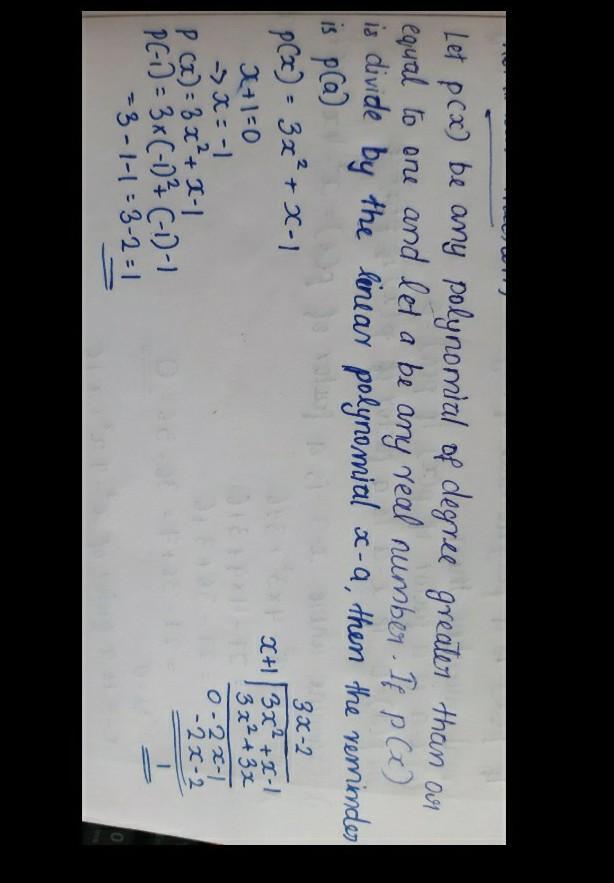 Let p(x) be any polynomial of degree greater than or
equal to one and let a be any real number. If p(x)
is divide by the linear polynomial x-a, then the reminder
is p(a)
p(x) = 3x² + x-1
x+1=0
→ x = -1
p(x) = 3x² + x-1
p(-1) = 3×(-1)² + (-1) -1
= 3 - 1 - 1 = 3 - 2 = 1
3x-2
x+1 | 3x² + x-1
3x² + 3x
0 - 2x - 1
-2x - 2
1